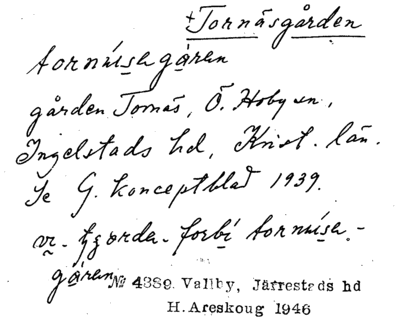 +Tornäsgården
tornnisagåran
gården Tornäs, Ö. Hoby sn,
Ingelstads hd, Krist. län.
Se G. konceptblad 1939.
vr - forbi tornnisa -
gåran № 4389. Vallby, Järrestads hd
H. Areskoug 1946